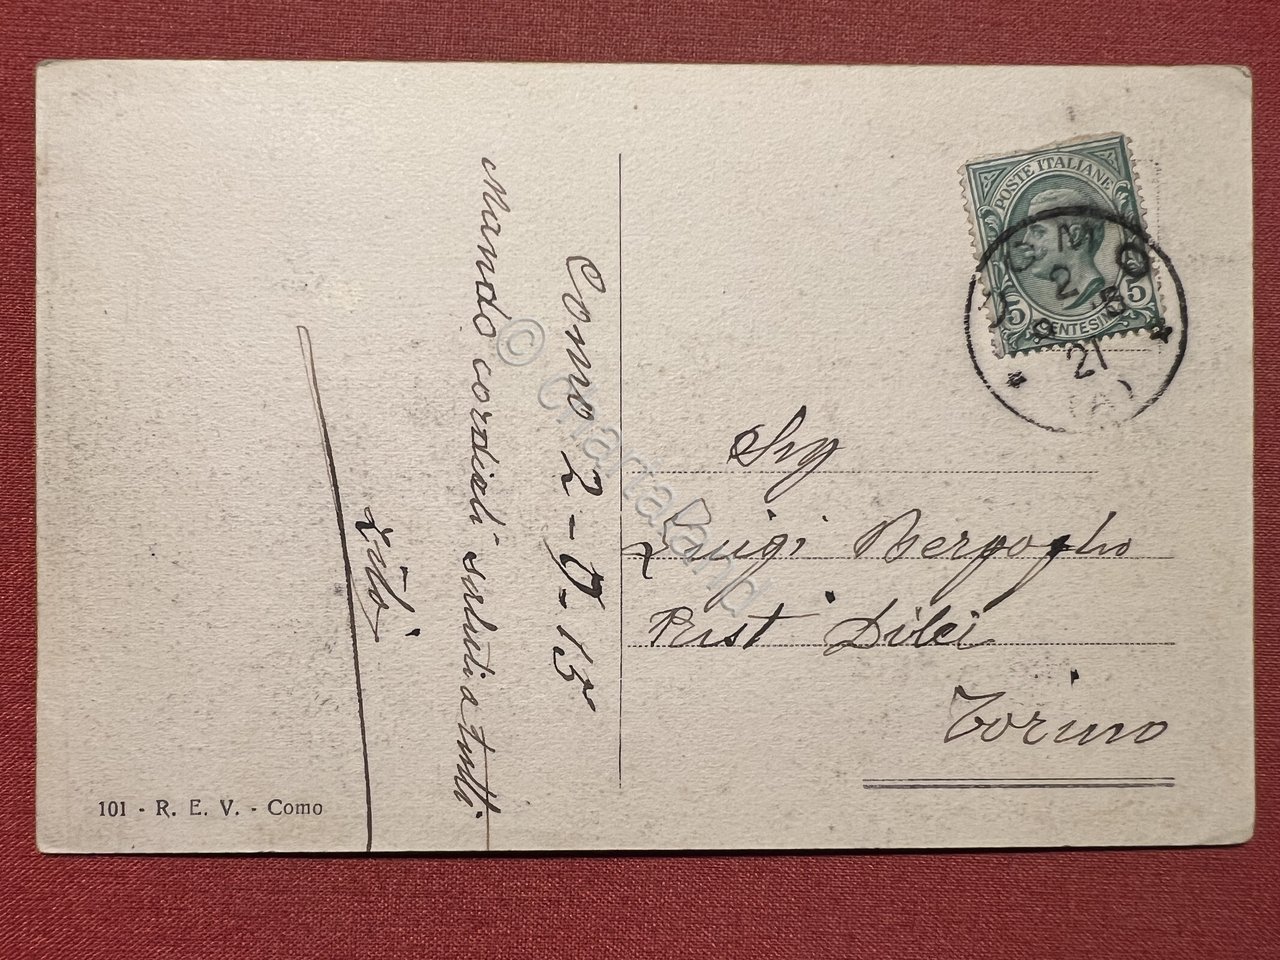 Como 2-8-15
Mando cordiali saluti a tutti
POSTE ITALIANE
5 CENTESIMI 5
COMO
2
8
21
(A)
Sig
Luigi Bergoglio
Torino
101 - R. E. V. - Como
© Chartaland